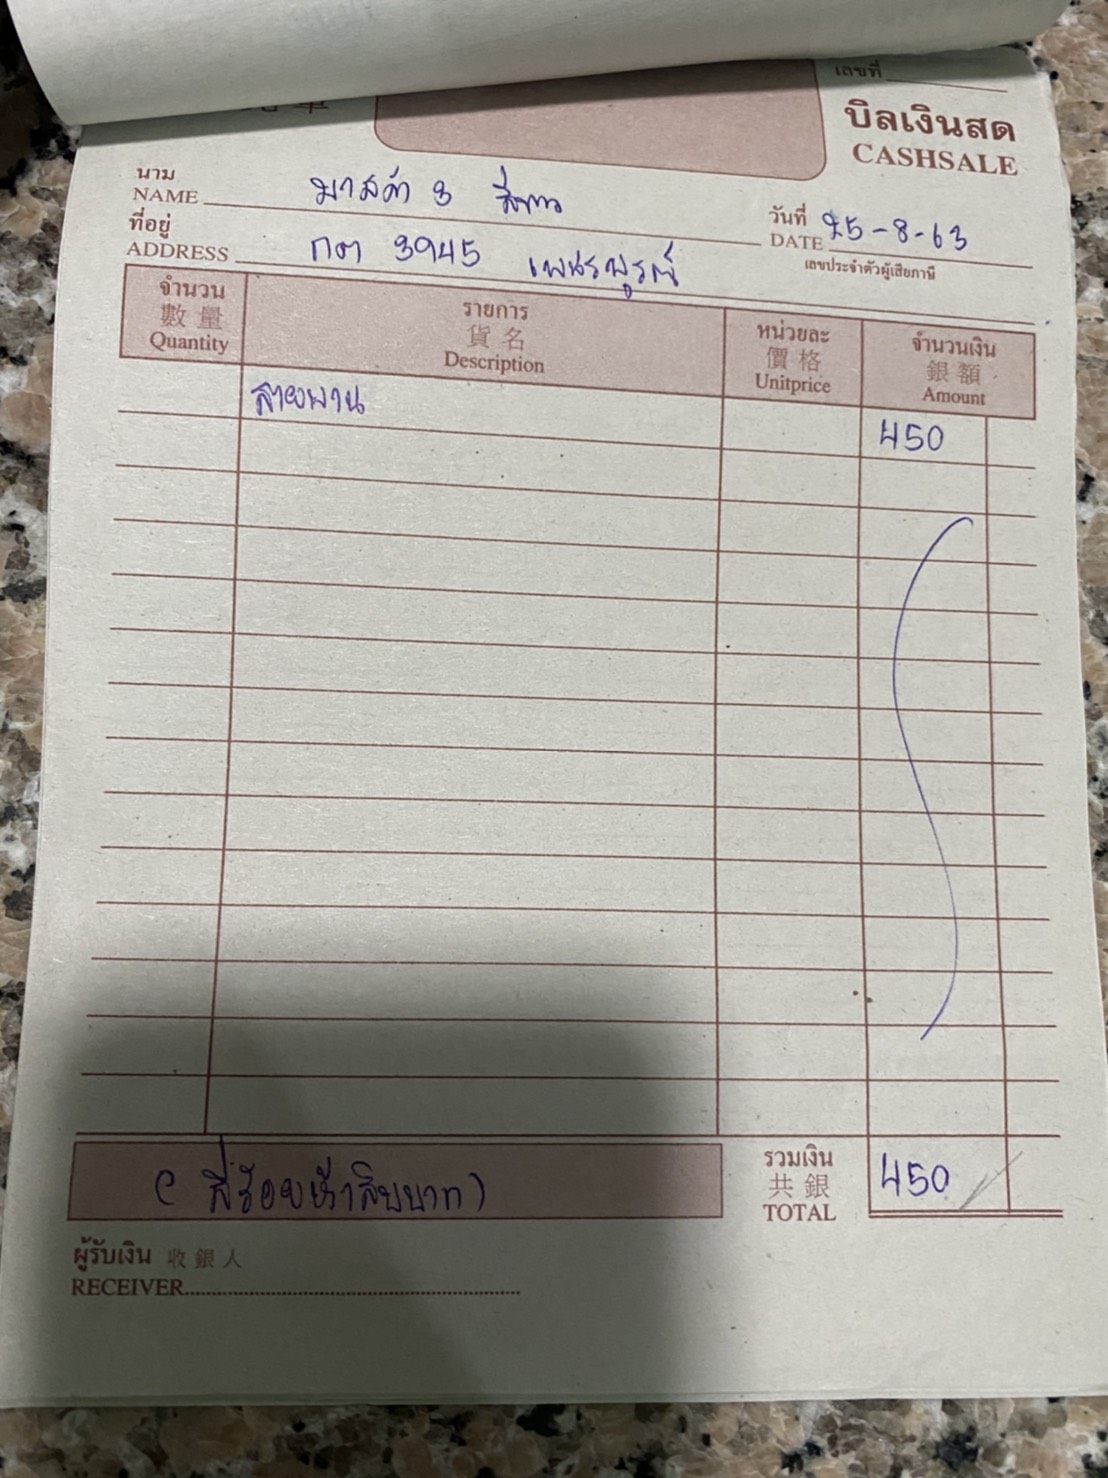 เลขที่
บิลเงินสด
CASHSALE
นาม
NAME มาสด้า 3 สีขาว
วันที่
DATE 25-8-63
ที่อยู่
ADDRESS กต 3945 เพชรบูรณ์
เลขประจำตัวผู้เสียภาษี
จำนวน รายการ หน่วยละ จำนวนเงิน
數量 貨名 價格 銀額
Quantity Description Unitprice Amount
สายพาน 450
(สี่ร้อยห้าสิบบาท)
รวมเงิน
共銀
TOTAL 450
ผู้รับเงิน 收銀人
RECEIVER